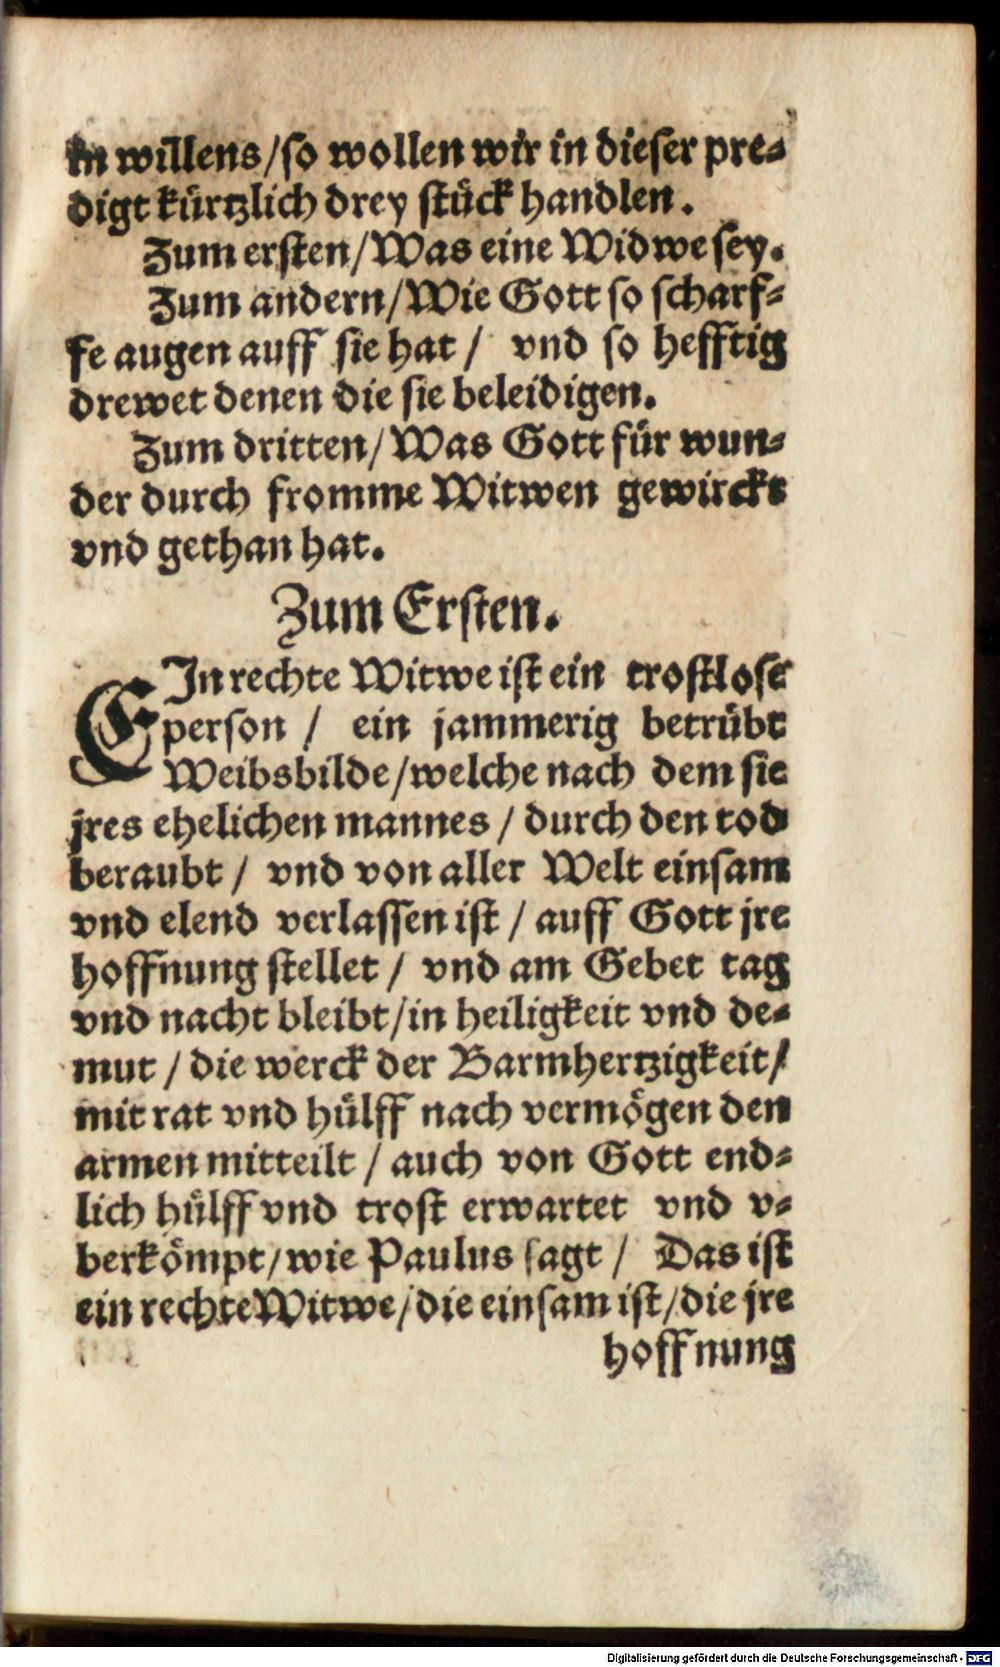 in willens/so wollen wir in dieser pre-
digt kürtzlich drey stück handlen.
Zum ersten/Was eine Widwe sey.
Zum andern/Wie Gott so scharf-
fe augen auff sie hat/ vnd so hefftig
drewet denen die sie beleidigen.
Zum dritten/Was Gott für wun-
der durch fromme Witwen gewirckt
vnd gethan hat.
Zum Ersten.
EIn rechte Witwe ist ein trostlose
person/ ein jammerig betrübt
Weibsbilde/welche nach dem sie
jres ehelichen mannes/durch den tod
beraubt/ vnd von aller Welt einsam
vnd elend verlassen ist/auff Gott jre
hoffnung stellet/ vnd am Gebet tag
vnd nacht bleibt/in heiligkeit vnd de-
mut/die werck der Barmhertzigkeit/
mit rat vnd hülff nach vermögen den
armen mitteilt/auch von Gott end-
lich hülff vnd trost erwartet vnd v-
berkömpt/wie Paulus sagt/ Das ist
ein rechte Witwe/die einsam ist/die jre
hoffnung
Digitalisierung gefördert durch die Deutsche Forschungsgemeinschaft - DFG